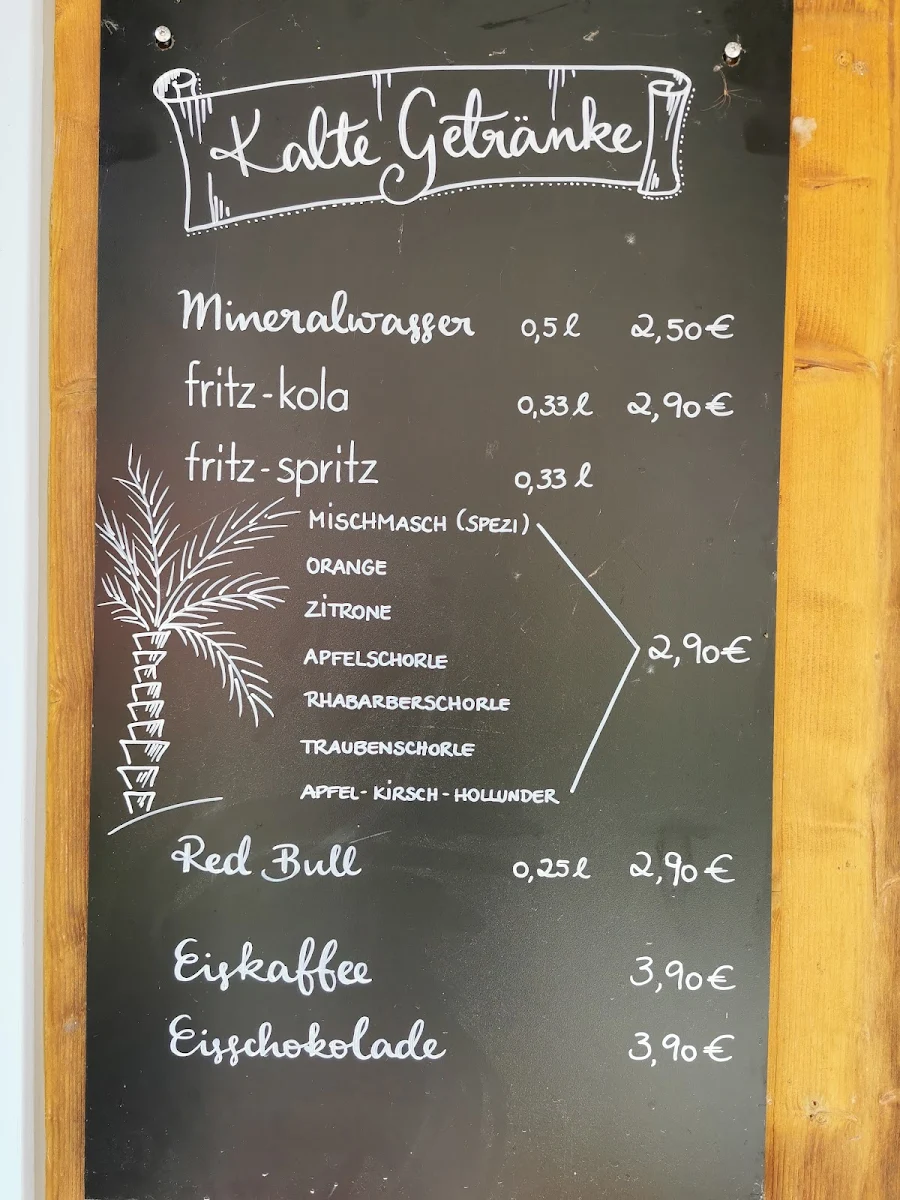 Kalte Getränke
Mineralwasser 0,5 l 2,50€
fritz-kola 0,33 l 2,90€
fritz-spritz 0,33 l
MISCHMASCH (SPEZI)
ORANGE
ZITRONE
APFELSCHORLE 2,90€
RHABARBERSCHORLE
TRAUBENSCHORLE
APFEL-KIRSCH-HOLLUNDER
Red Bull 0,25 l 2,90€
Eiskaffee 3,90€
Eisschokolade 3,90€